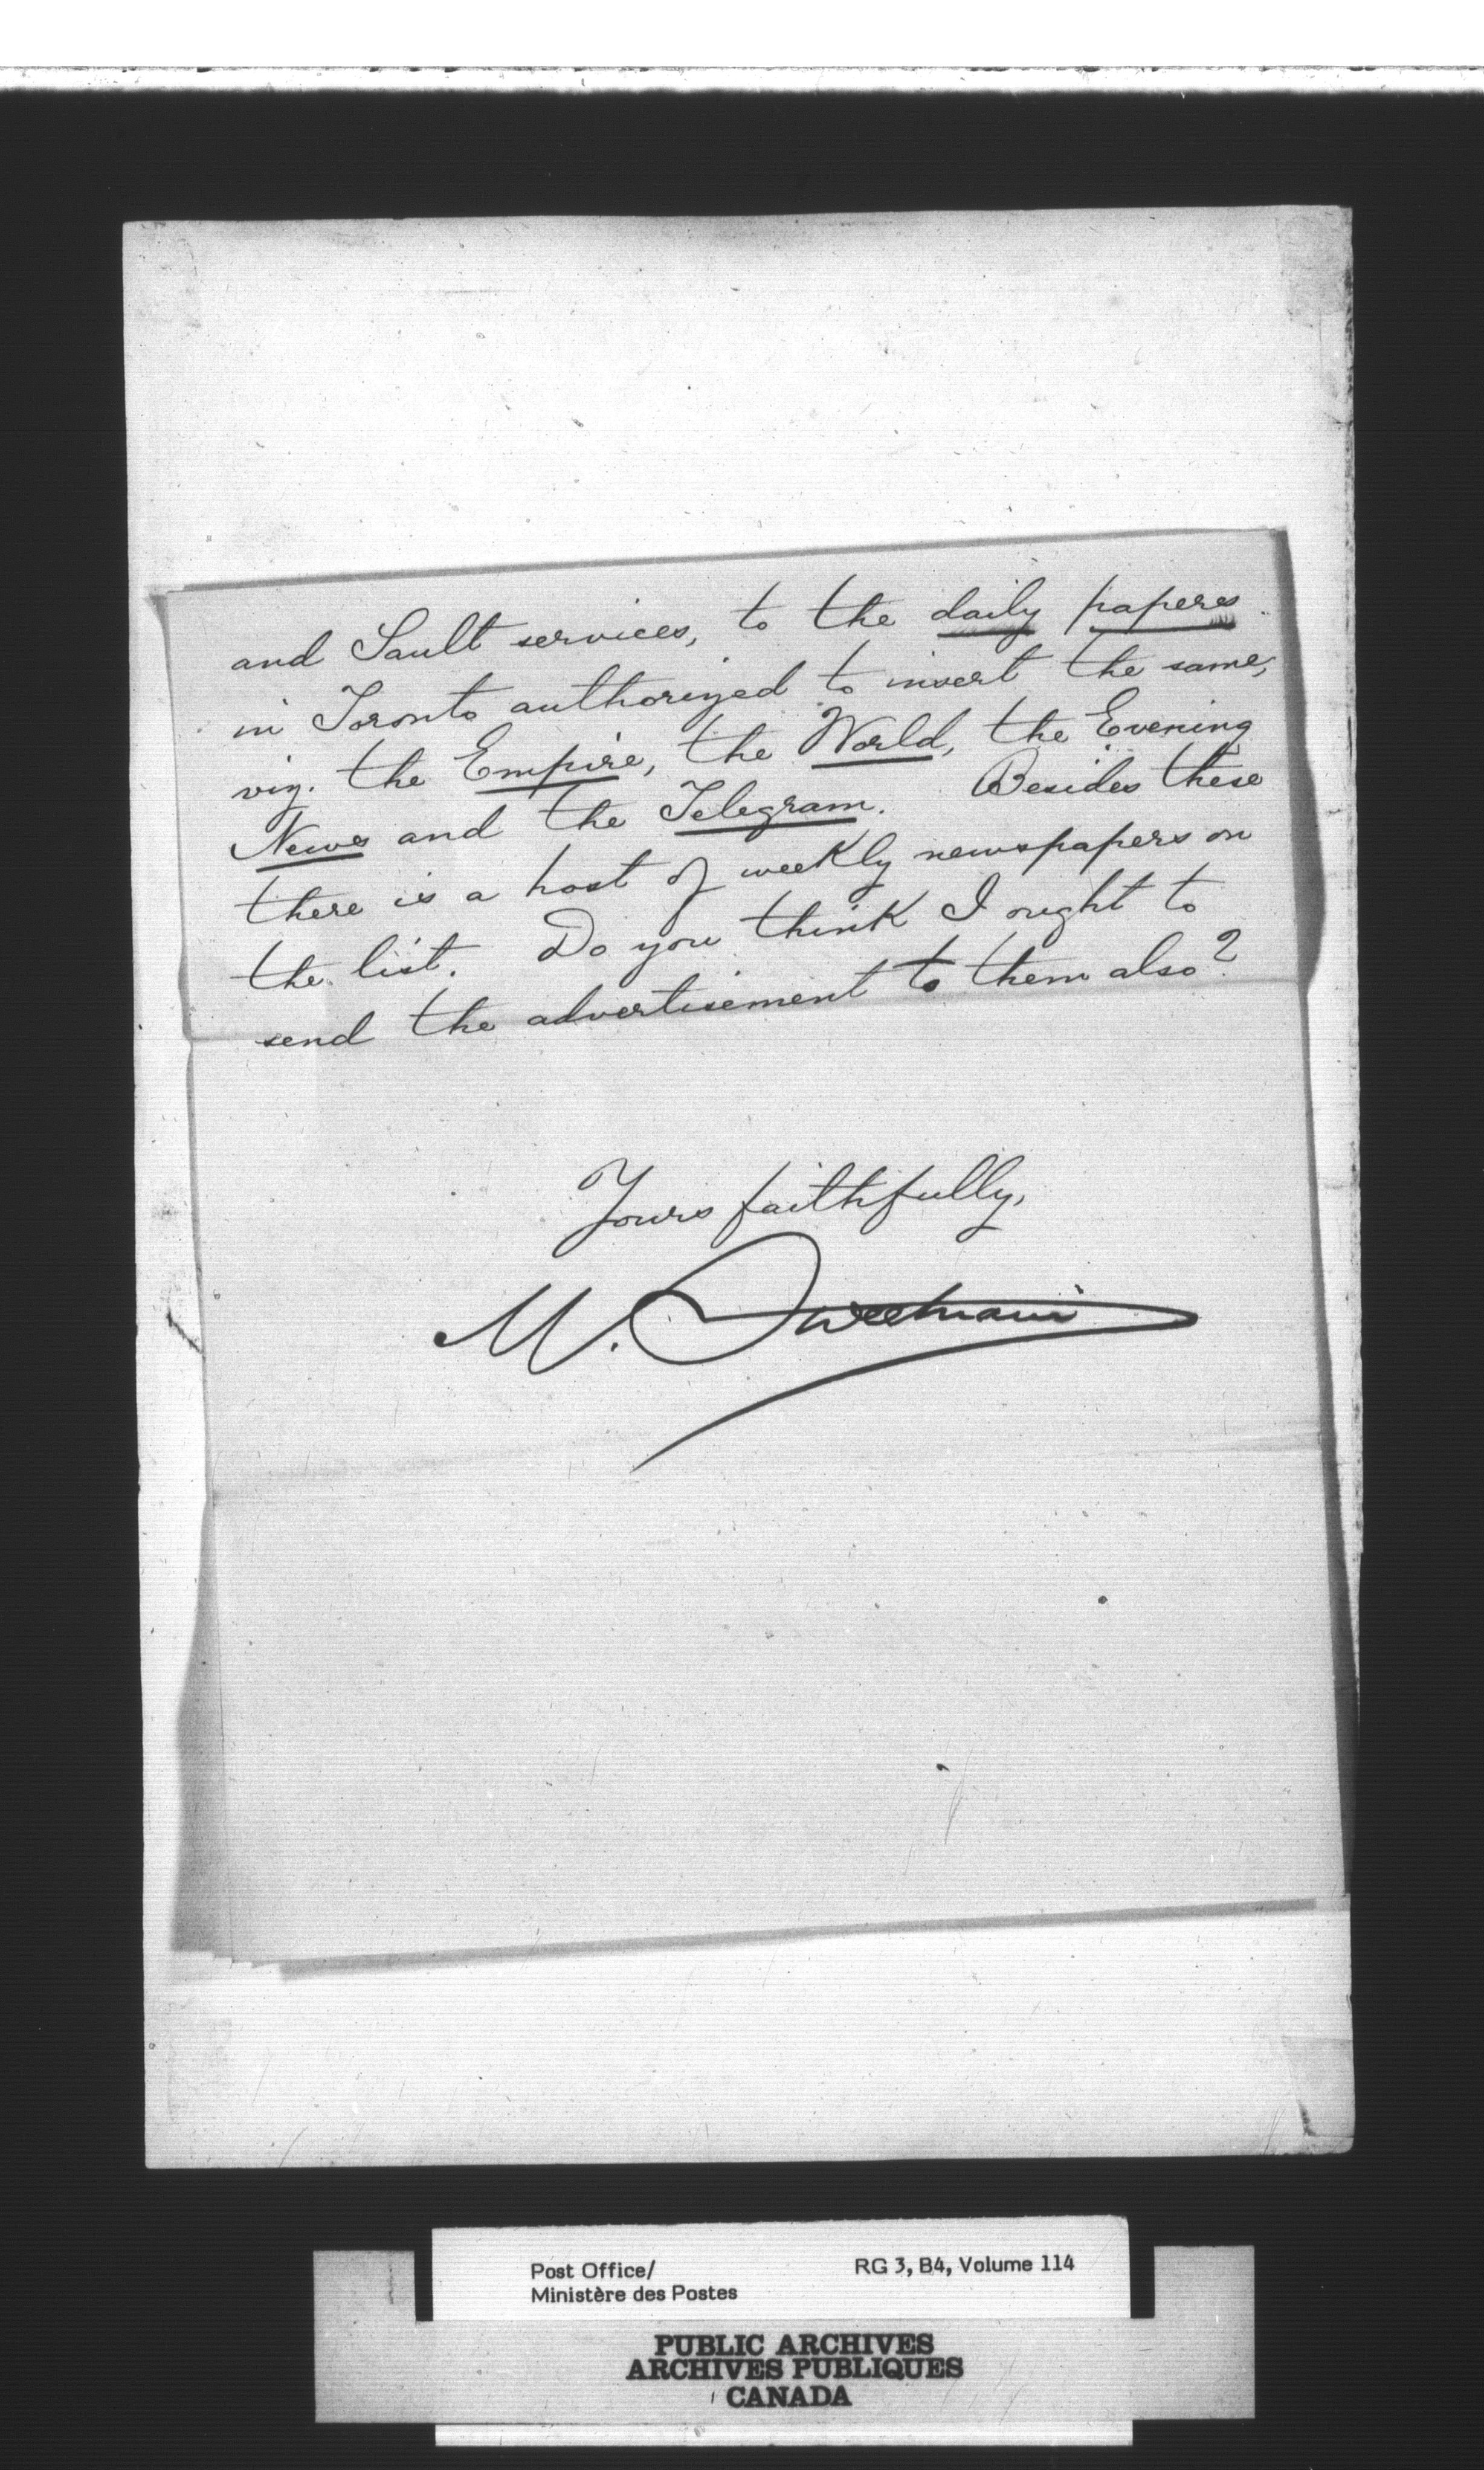 and Sault services, to the daily papers
in Toronto authorized to insert the same,
viz. the Empire, the World, the Evening
News and the Telegram. Besides these
there is a host of weekly newspapers on
the list. Do you think I ought to
send the advertisement to them also?
Yours faithfully,
M. Sweetnam
Post Office/
Ministère des Postes
RG 3, B4, Volume 114
PUBLIC ARCHIVES
ARCHIVES PUBLIQUES
CANADA